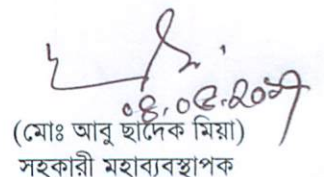 ০৪.০৫.২০১৭
(মোঃ আবু ছাদেক মিয়া)
সহকারী মহাব্যবস্থাপক